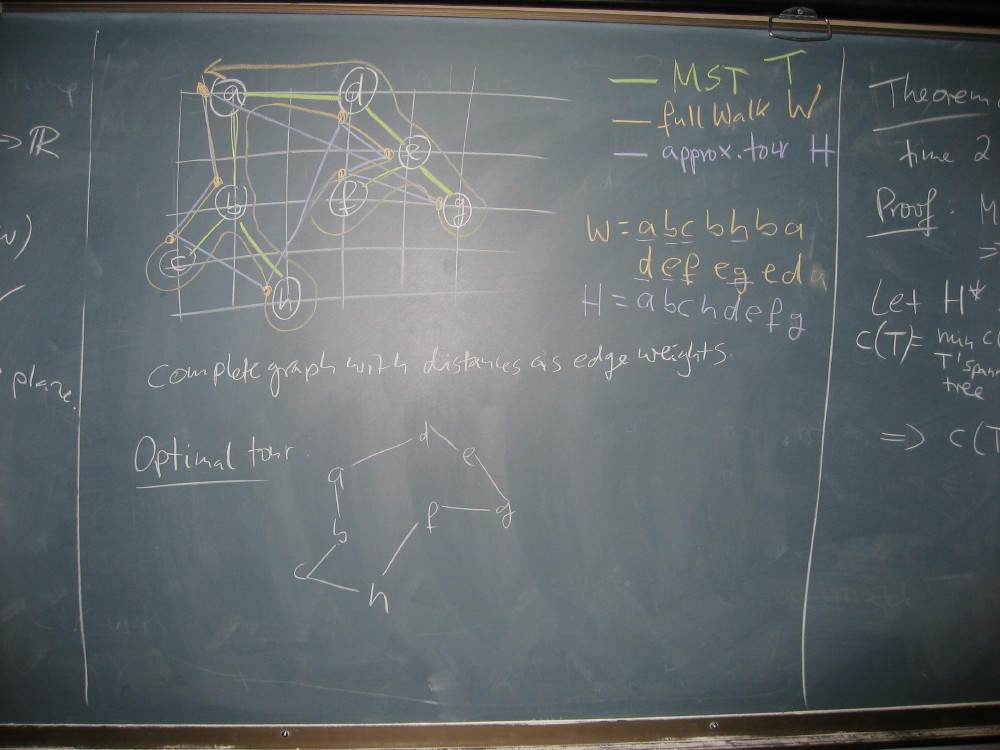 => ℝ
w)
plane.
a
d
e
b
f
g
c
h
MST T
full walk W
approx. tour H
W = a b c b h b a
d e f e g e d a
H = a b c h d e f g
complete graph with distances as edge weights.
Optimal tour.
d
a
e
f
g
b
c
h
Theorem
time 2
Proof. M
=>
Let H*
c(T) = min c(
T' span
tree
=> c(T